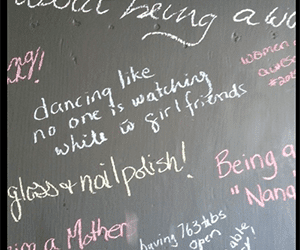 being a
ng!
dancing like
no one is watching
while w girlfriends
women
gloss & nail polish!
Being a
"Nana
a Mother
having 763 tabs
open